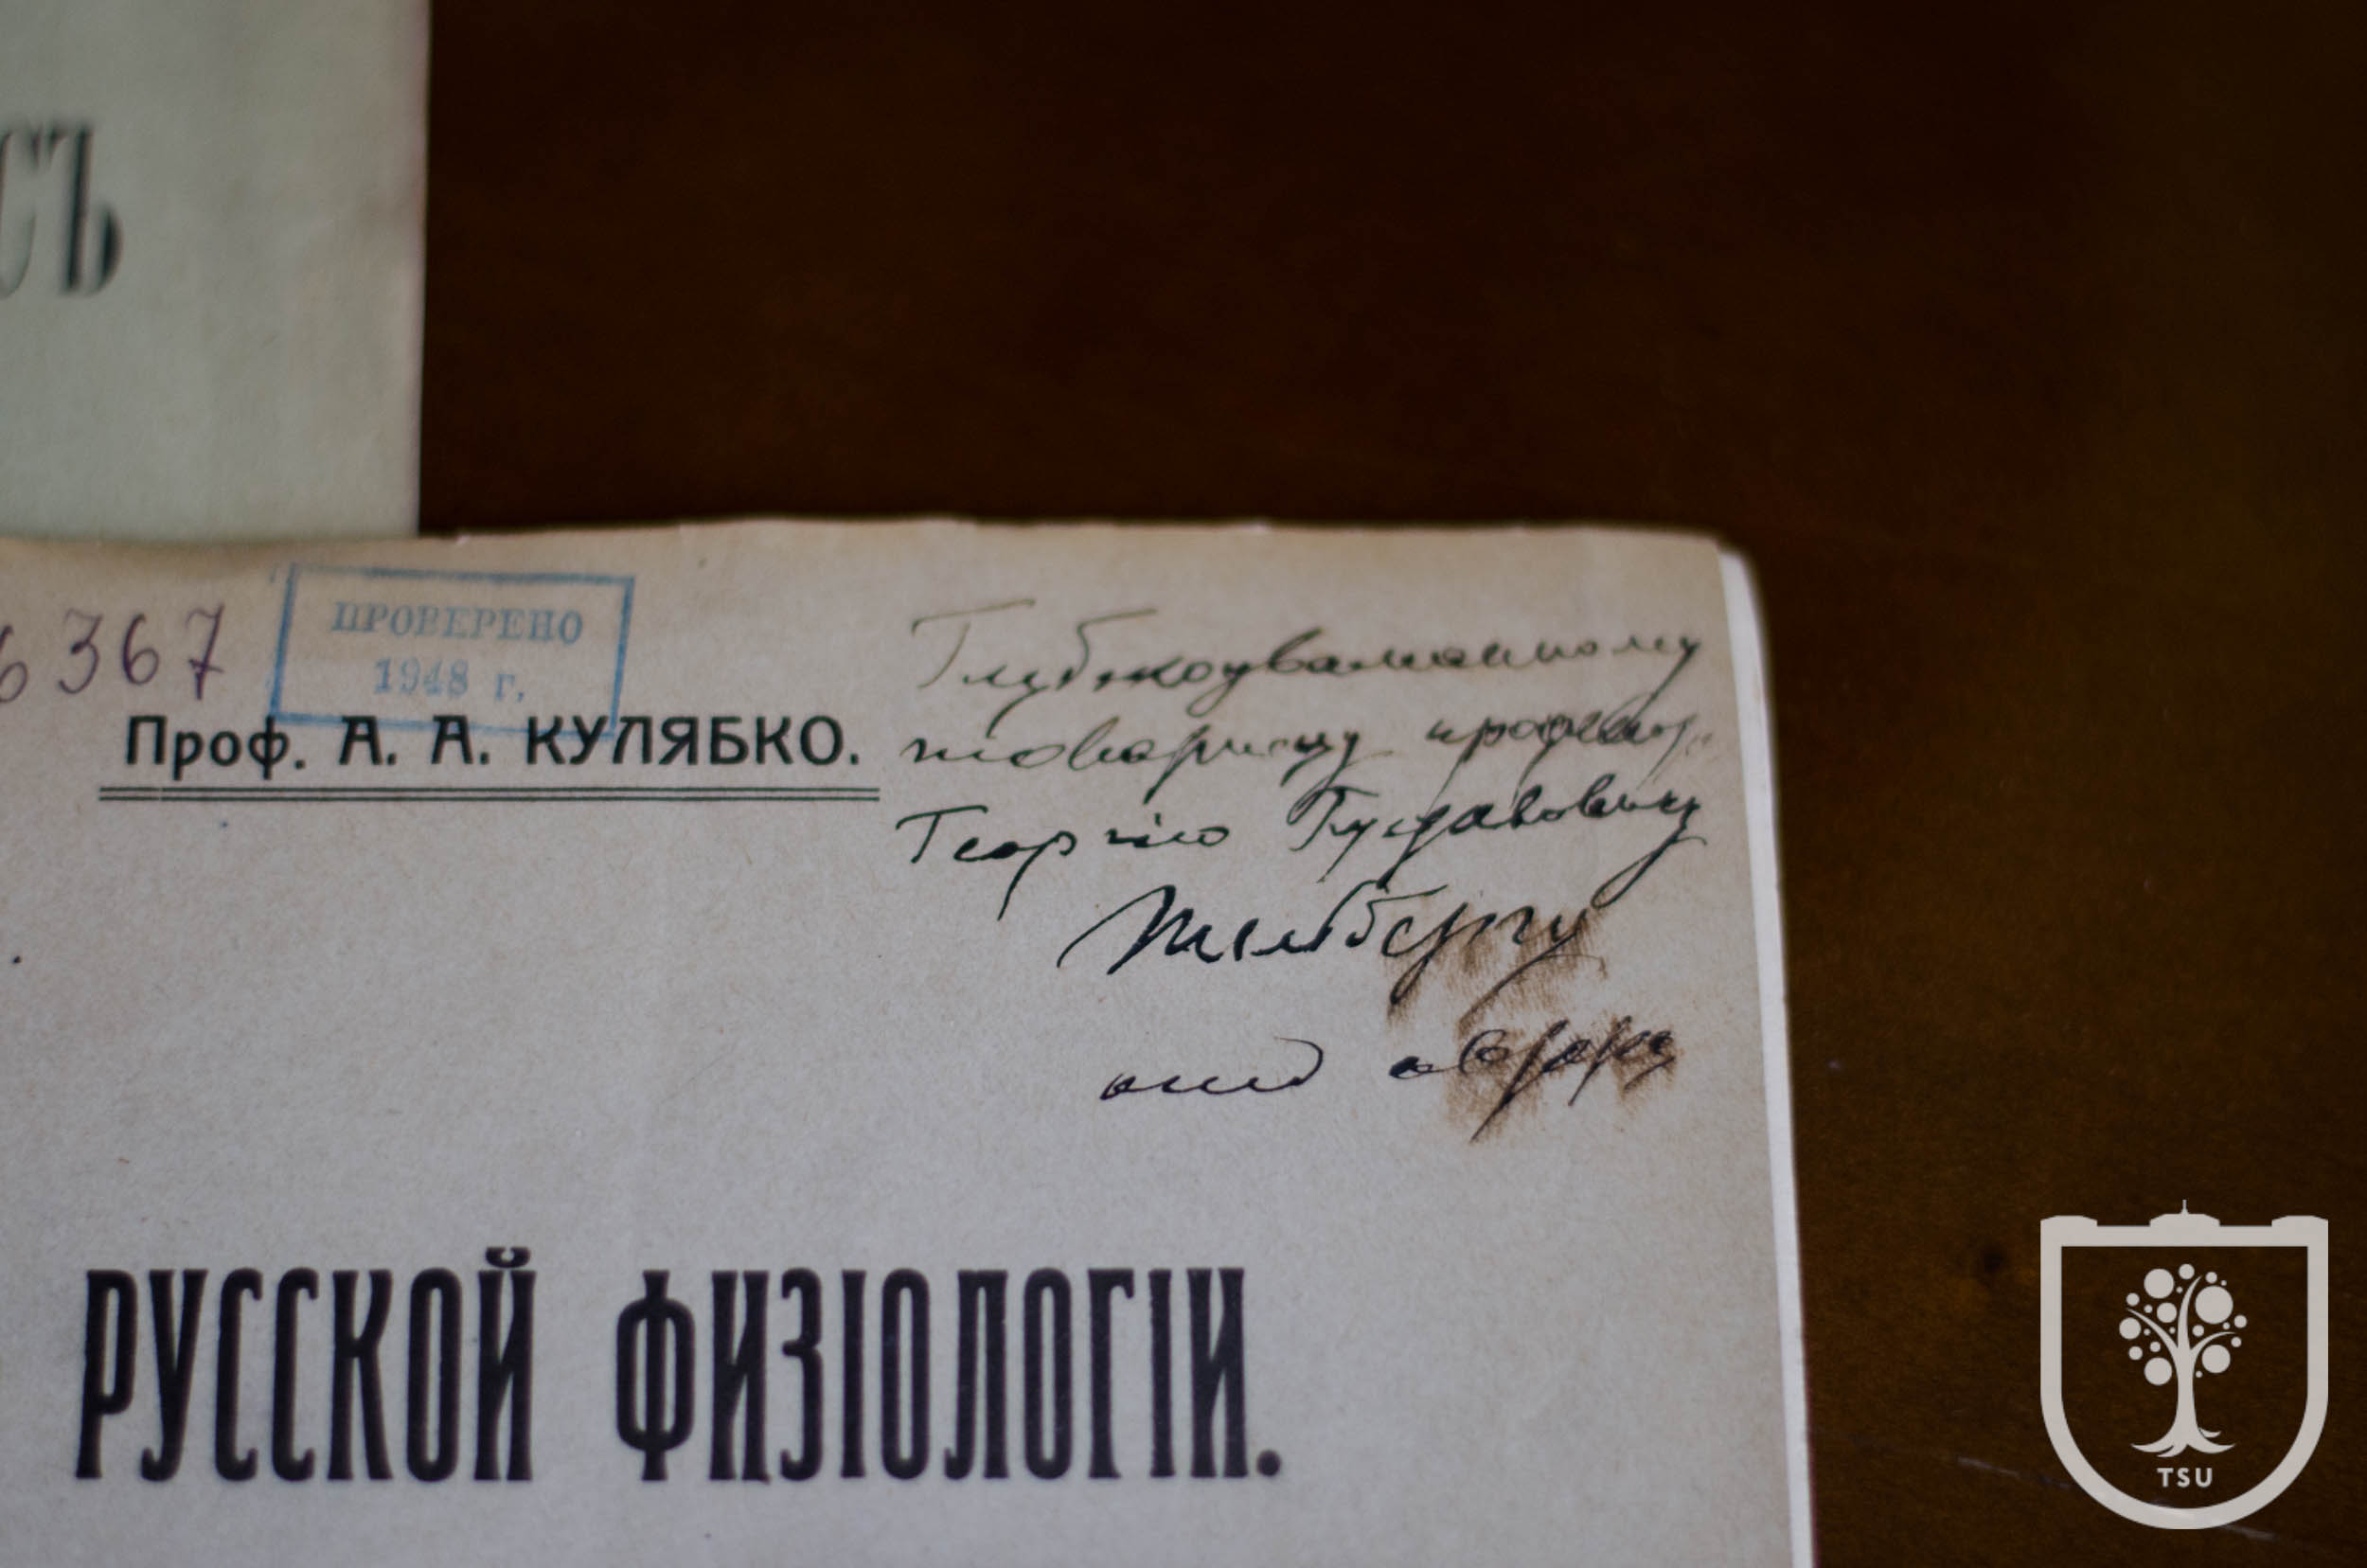 СЪ
6367
ПРОВЕРЕНО
1948 г.
Проф. А. А. КУЛЯБКО.
Глубокоуважаемому
товарищу
Георгію Густавовичу
отъ автора
РУССКОЙ ФИЗІОЛОГІИ.
TSU